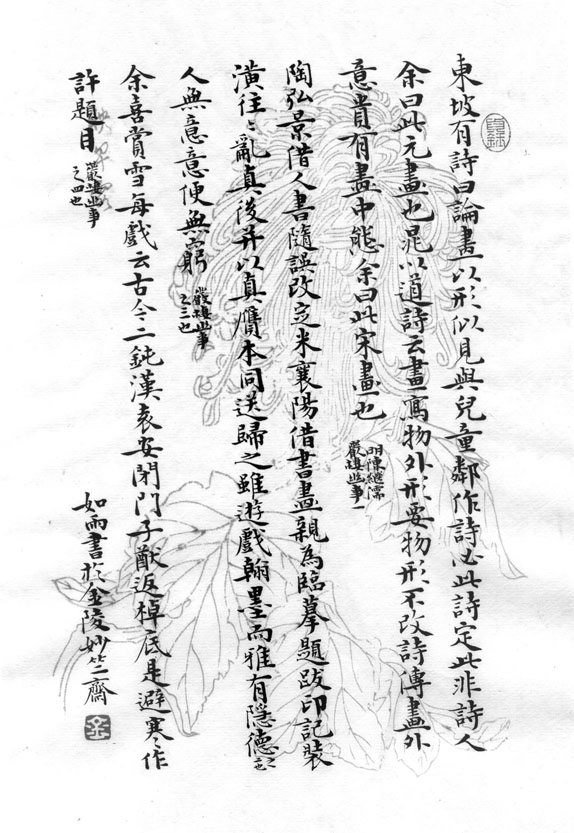 東坡有詩曰論畫以形似見與兒童鄰作詩必此詩定此非詩人
余曰此元畫也晁以道詩云畫寫物外形要物形不改詩傳畫外
意貴有畫中態余曰此宋畫也
明陳繼儒
巖棲幽事一
陶弘景借人書隨誤改定米襄陽借書畫親為臨摹題跋印記裝
潢往〻亂真後并以真贋本同送歸之雖遊戲翰墨而雅有隱德
人無意意便無窮
之三也
余喜賞雪每戲云古今二鈍漢袁安閉門子猷返棹底是避寒作
許題目
之四也
如雨書於金陵妙竺齋